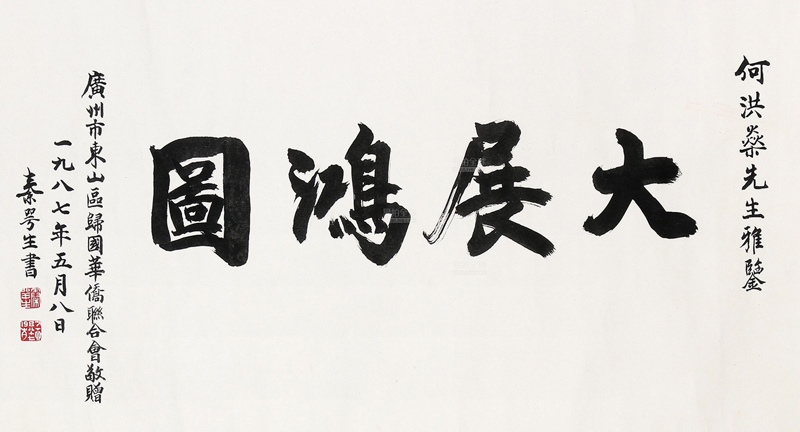 何洪燊先生雅鑒
大展鴻圖
廣州市東山區歸國華僑聯合會敬贈
一九八七年五月八日
秦咢生書